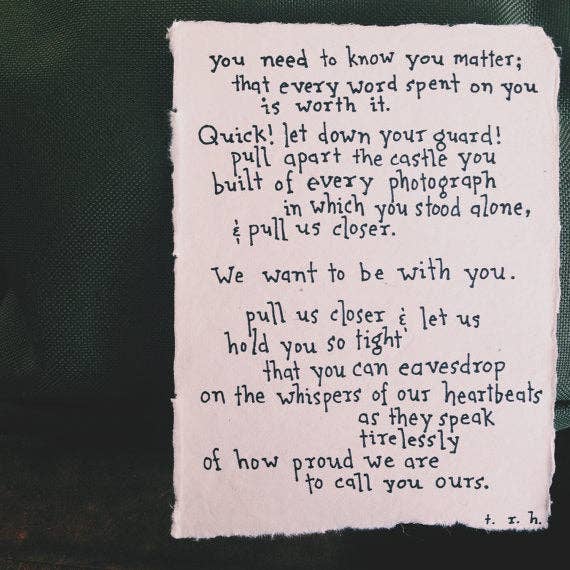 you need to know you matter;
that every word spent on you
is worth it.
Quick! let down your guard!
pull apart the castle you
built of every photograph
in which you stood alone,
& pull us closer.
We want to be with you.
pull us closer & let us
hold you so tight
that you can eavesdrop
on the whispers of our heartbeats
as they speak
tirelessly
of how proud we are
to call you ours.
t. r. h.